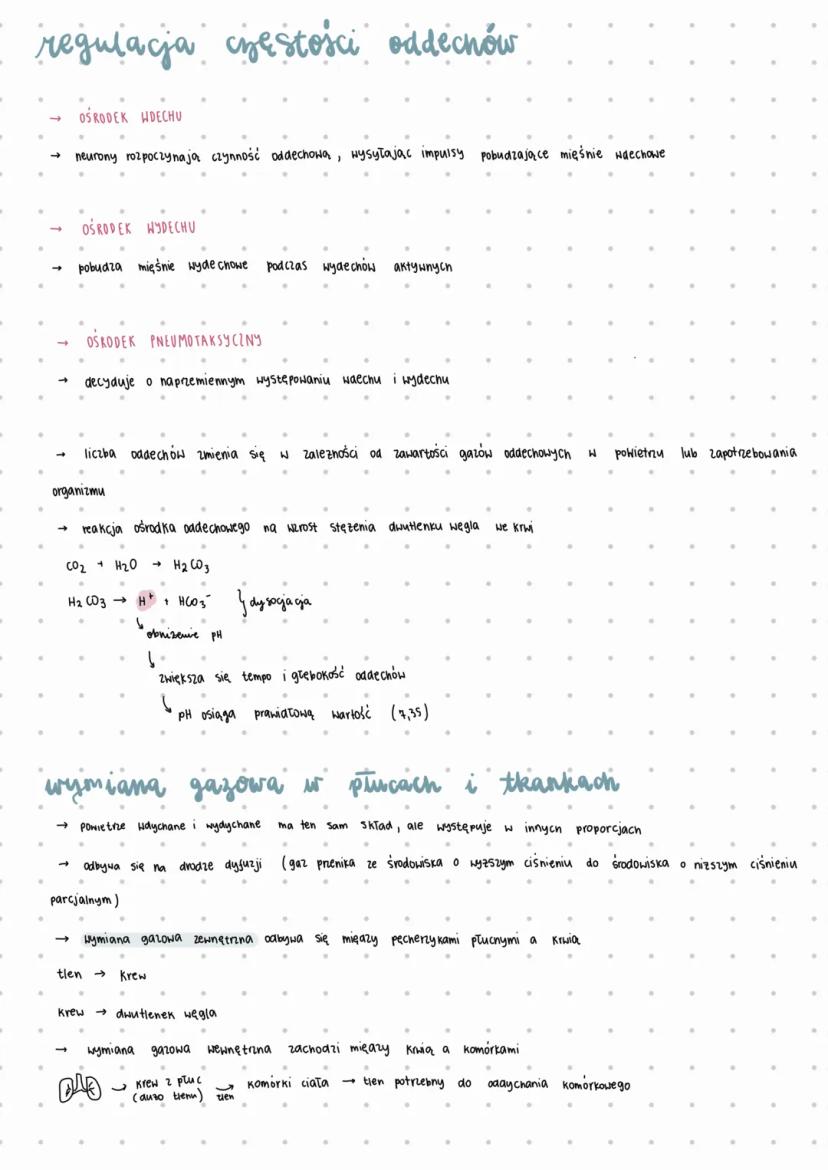 regulacja częstości oddechów
→ OŚRODEK WDECHU
→ neurony rozpoczynają czynność oddechową, wysyłając impulsy pobudzające mięśnie wdechowe
→ OŚRODEK WYDECHU
→ pobudza mięśnie wydechowe podczas wydechów aktywnych
→ OŚRODEK PNEUMOTAKSYCZNY
→ decyduje o naprzemiennym występowaniu wdechu i wydechu
→ liczba oddechów zmienia się w zależności od zawartości gazów oddechowych w powietrzu lub zapotrzebowania
organizmu
→ reakcja ośrodka oddechowego na wzrost stężenia dwutlenku węgla we krwi
CO2 + H2O → H2CO3
H2CO3 → H⁺ + HCO3⁻ } dysocjacja
↳ obniżenie pH
↳ zwiększa się tempo i głębokość oddechów
↳ pH osiąga prawidłową wartość (7,35)
wymiana gazowa w płucach i tkankach
→ powietrze wdychane i wydychane ma ten sam skład, ale występuje w innych proporcjach
→ odbywa się na drodze dyfuzji (gaz przenika ze środowiska o wyższym ciśnieniu do środowiska o niższym ciśnieniu
parcjalnym)
→ wymiana gazowa zewnętrzna odbywa się między pęcherzykami płucnymi a krwią
tlen → krew
krew → dwutlenek węgla
→ wymiana gazowa wewnętrzna zachodzi między krwią a komórkami
→ krew z płuc (dużo tlenu) → tlen komórki ciała → tlen potrzebny do oddychania komórkowego